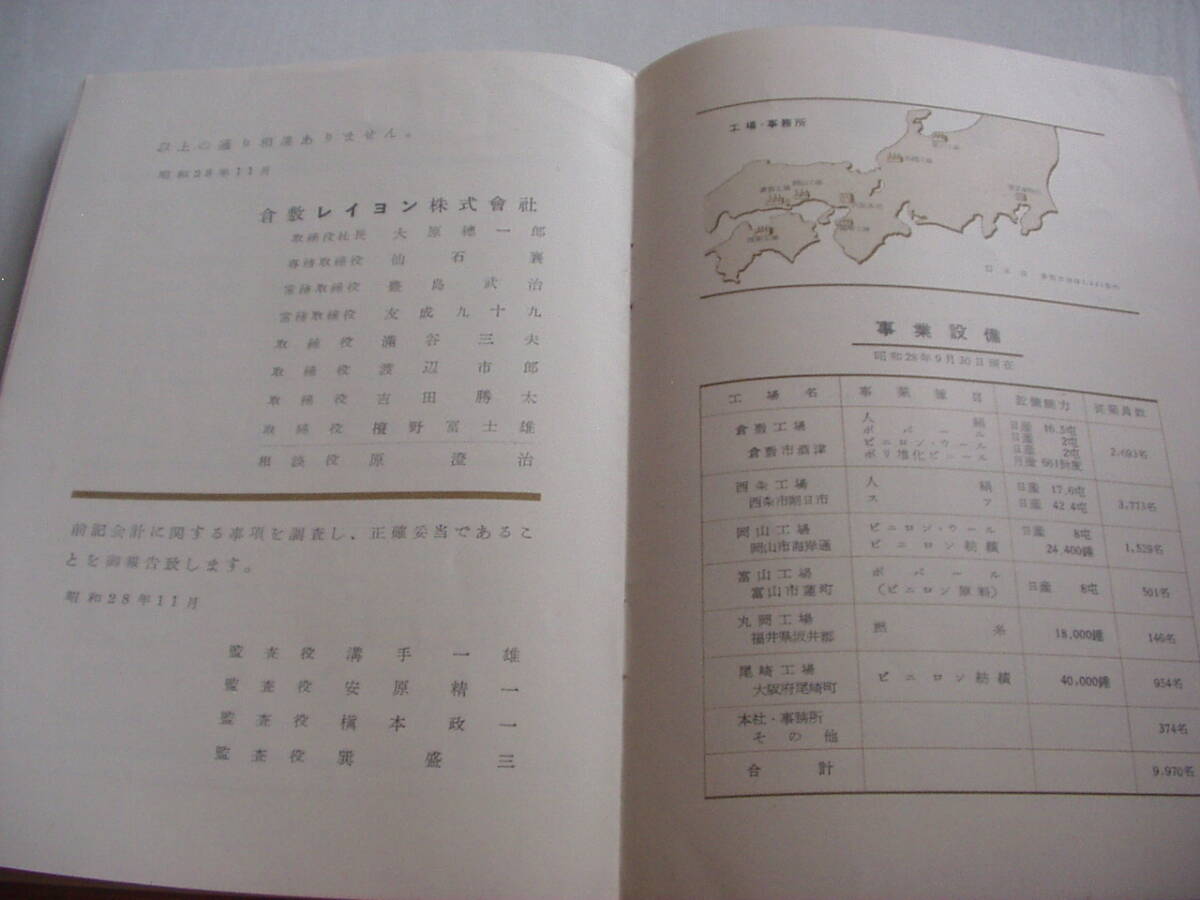 以上の通り相違ありません。
昭和28年11月
倉敷レイヨン株式會社
取締役社長 大原總一郎
専務取締役 仙石襄
常務取締役 豊島武治
常務取締役 友成九十九
取締役 浦谷三夫
取締役 渡辺市郎
取締役 吉田勝太
取締役 檟野富士雄
相談役 原澄治
前記会計に関する事項を調査し、正確妥当であるこ
とを御報告致します。
昭和28年11月
監査役 溝手一雄
監査役 安原精一
監査役 槇本政一
監査役 巽盛三
工場・事務所
事業設備
昭和28年9月30日現在
工場名 事業種目 設備能力 従業員数
倉敷工場 人絹 日産 16.5屯
ポバール 日産 2屯
倉敷市酒津 ビニロン・ウール 日産 2屯 2.693名
ポリ塩化ビニール 月産
西条工場 人絹 日産 17.6屯
西条市朔日市 スフ 日産 42.4屯 3,773名
岡山工場 ビニロン・ウール 日産 8屯
岡山市海岸通 ビニロン紡績 24,400錘 1,529名
富山工場 ポバール
富山市蓮町 (ビニロン原料) 日産 8屯 501名
丸岡工場
福井県坂井郡 撚糸 18,000錘 146名
尾崎工場
大阪府尾崎町 ビニロン紡績 40,000錘 954名
本社・事務所
その他 374名
合計 9.970名